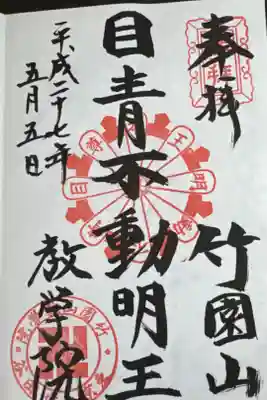 奉拝
竹園山
目青不動明王
教学院
平成二十七年
五月五日